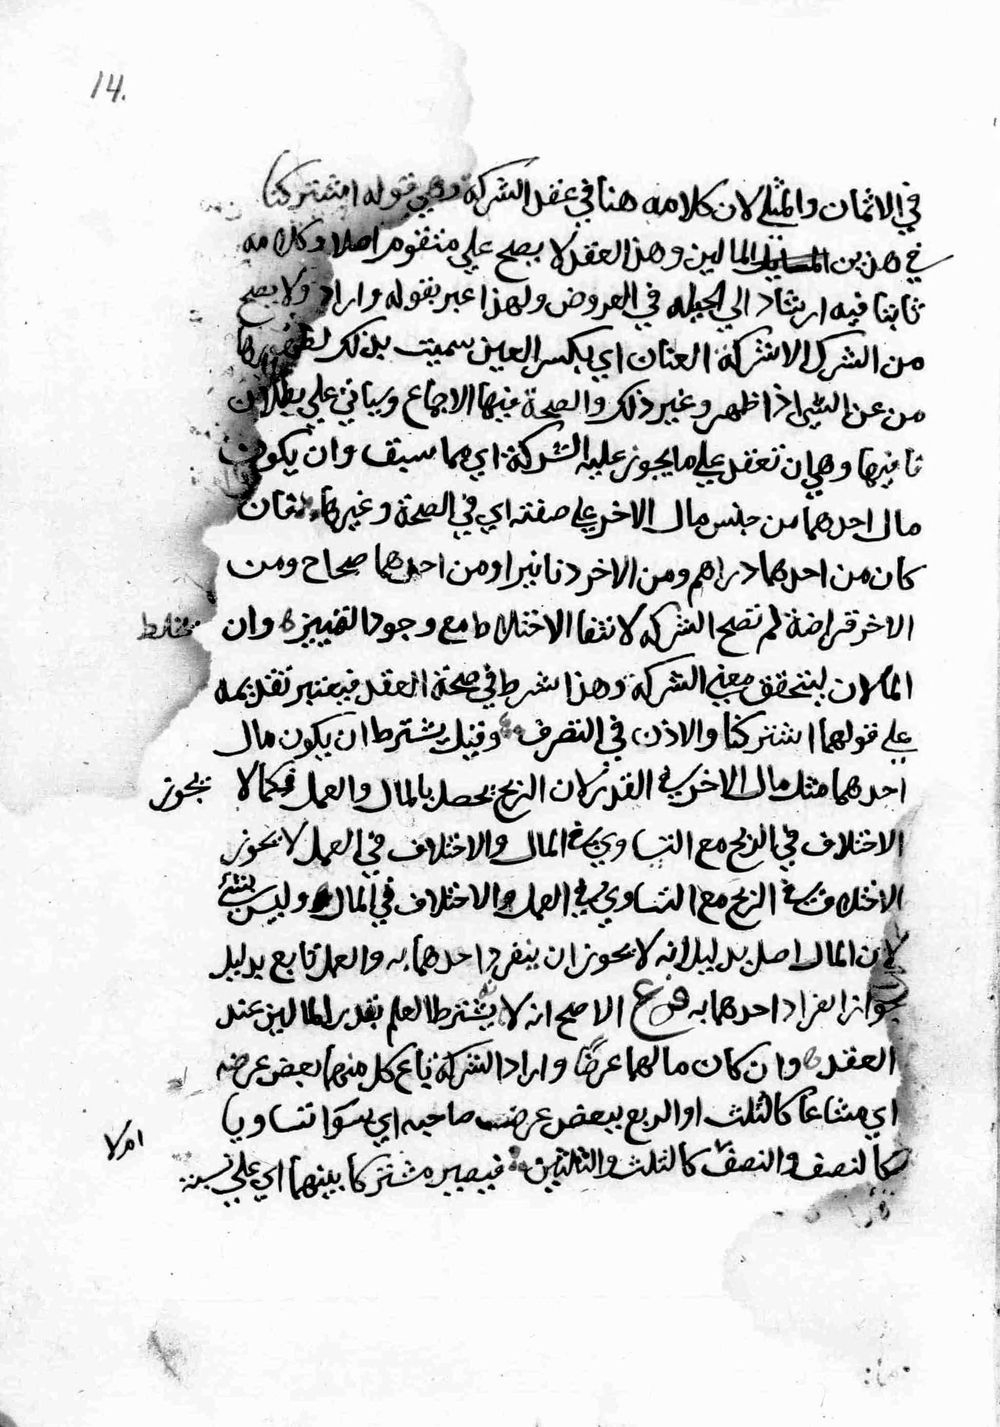 14.
في الاثمان والمثلي لان كلامه هنا في عقد الشركة وهي قوله اشتركنا
في هذين المالين وهذا العقد لا يصح علي متقوم اصلا وكلامه
ثانيا فيه ارشاد الي الحيله في العروض ولهذا عبر بقوله واراد ولا يصح
من الشرك الا شركة العنان اي بكسر العين سميت بذلك لظهورها
من عن الشي اذا ظهر وغير ذلك والصحة فيها الاجماع وسياتي علي بطلان
تا وهي ان تعقد علي ما يجوز عليه الشركة اي مما سبق وان يكون
مال احدهما من جنس مال الاخر علي صفته اي في الصحة وغيرها فان
كان من احدهما دراهم ومن الاخر دنانير او من احدهما صحاح ومن
الاخر قراضة لم تصح الشركه لانتفا الاختلاط مع وجود التمييز وان يختلط
المالان ليتحقق معني الشركة وهذا شرط في صحة العقد فيعتبر تقديمه
علي قولهما اشتركنا والاذن في التصرف وقيل يشترط ان يكون مال
احدهما مثل مال الاخر في القدر لان الربح يحصل بالمال والعمل فكما لا يجوز
الاختلاف في الربح مع التساوي في المال والاختلاف في العمل لا يجوز
الاختلاف في الربح مع التساوي في العمل والاختلاف في المال وليس بشئ
لان المال اصل بدليل انه لا يجوز ان ينفرد احدهما به والعمل تابع بدليل
جواز انفراد احدهما به فرع الاصح انه لا يشترط العلم بقدر المالين عند
العقد وان كان مالهما عرضا واراد الشركة باع كل منهما بعض عرضه
اي مشاعا كالثلث او الربع ببعض عرض صاحبه اي سوا تساويا
كالنصف والنصف كالثلث والثلثين فيصير مشتركا بينهما اي علي نسبة
ام لا